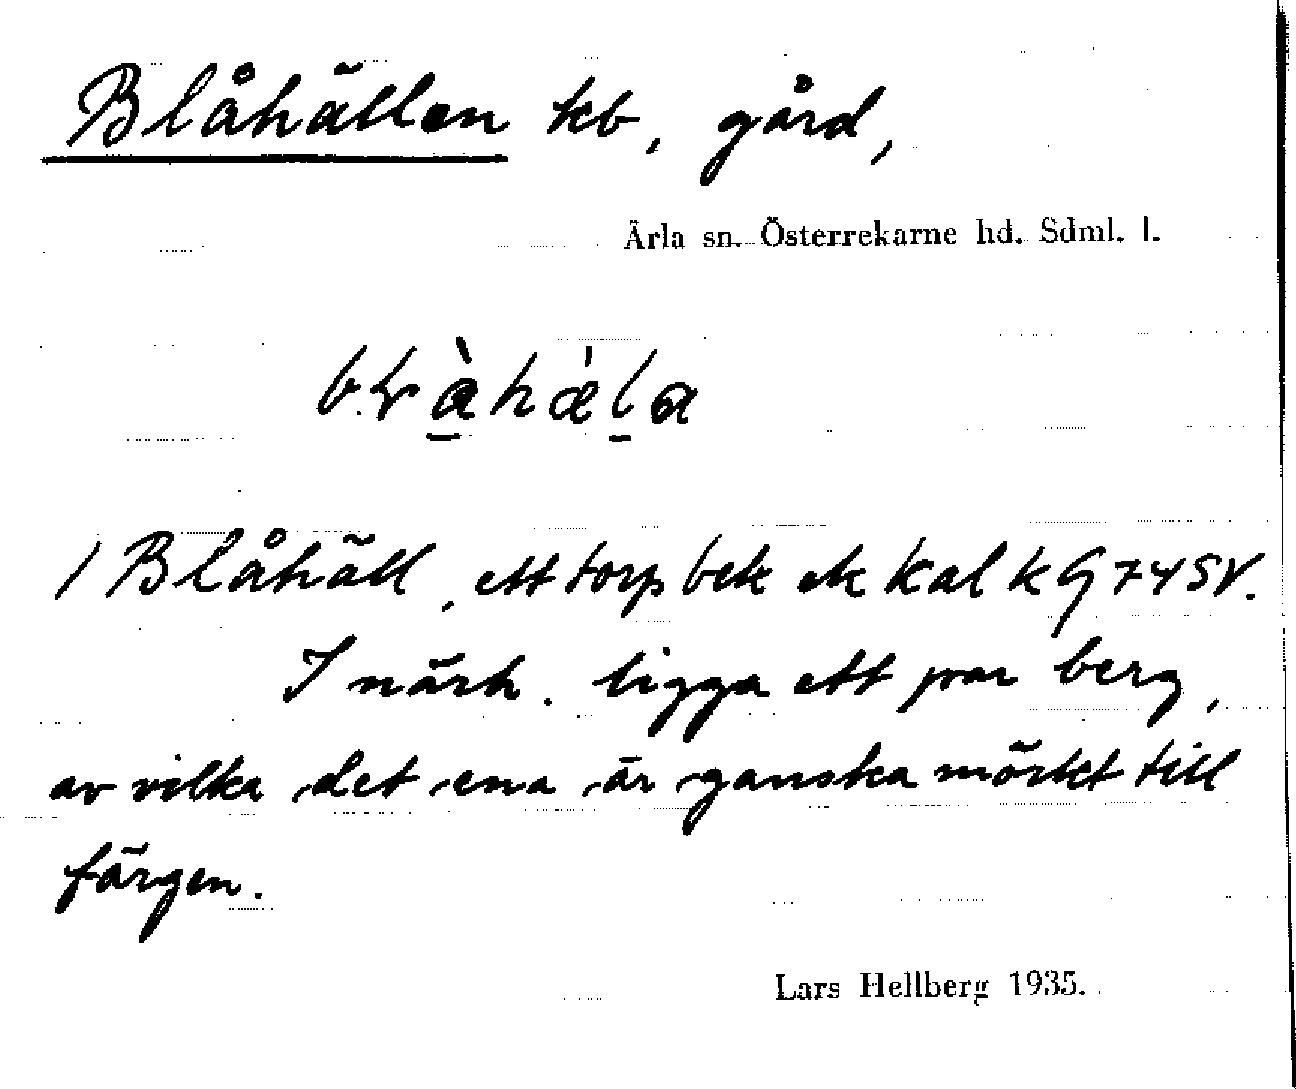 Blåhällen kb, gård,
Ärla sn. Österrekarne hd. Sdml. l.
/ Blåhäll, ett torp bek ek kal k G 74 SV.
I närh. ligga ett par berg,
av vilka det ena är ganska mörkt till
färgen.
Lars Hellberg 1935.